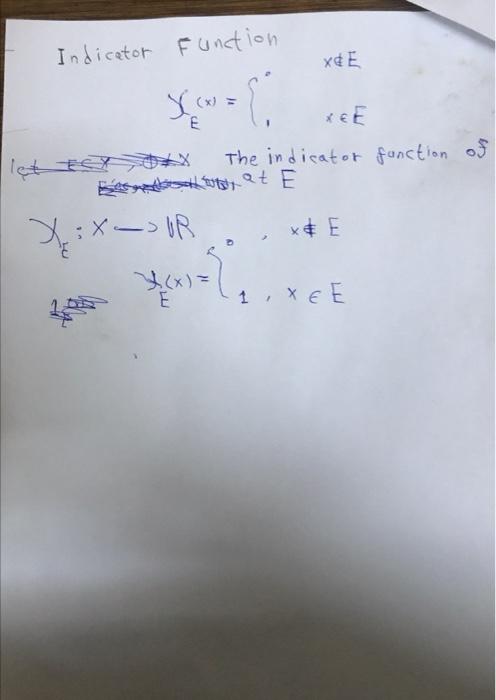 Indicator Function
χ_E (x) = { 0 x∉E
1 x∈E
let E⊂X, ∅≠X The indicator function of
at E
χ_E : X → ℝ
χ_E (x) = { 0 , x∉E
1 , x∈E